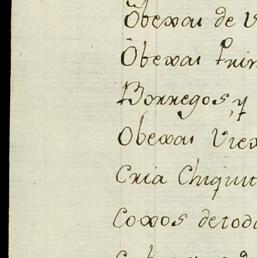 Obexas de V
Obexas Prim
Borregos, y
Obexas Viex
Cria Chiquit
Coxos de todo